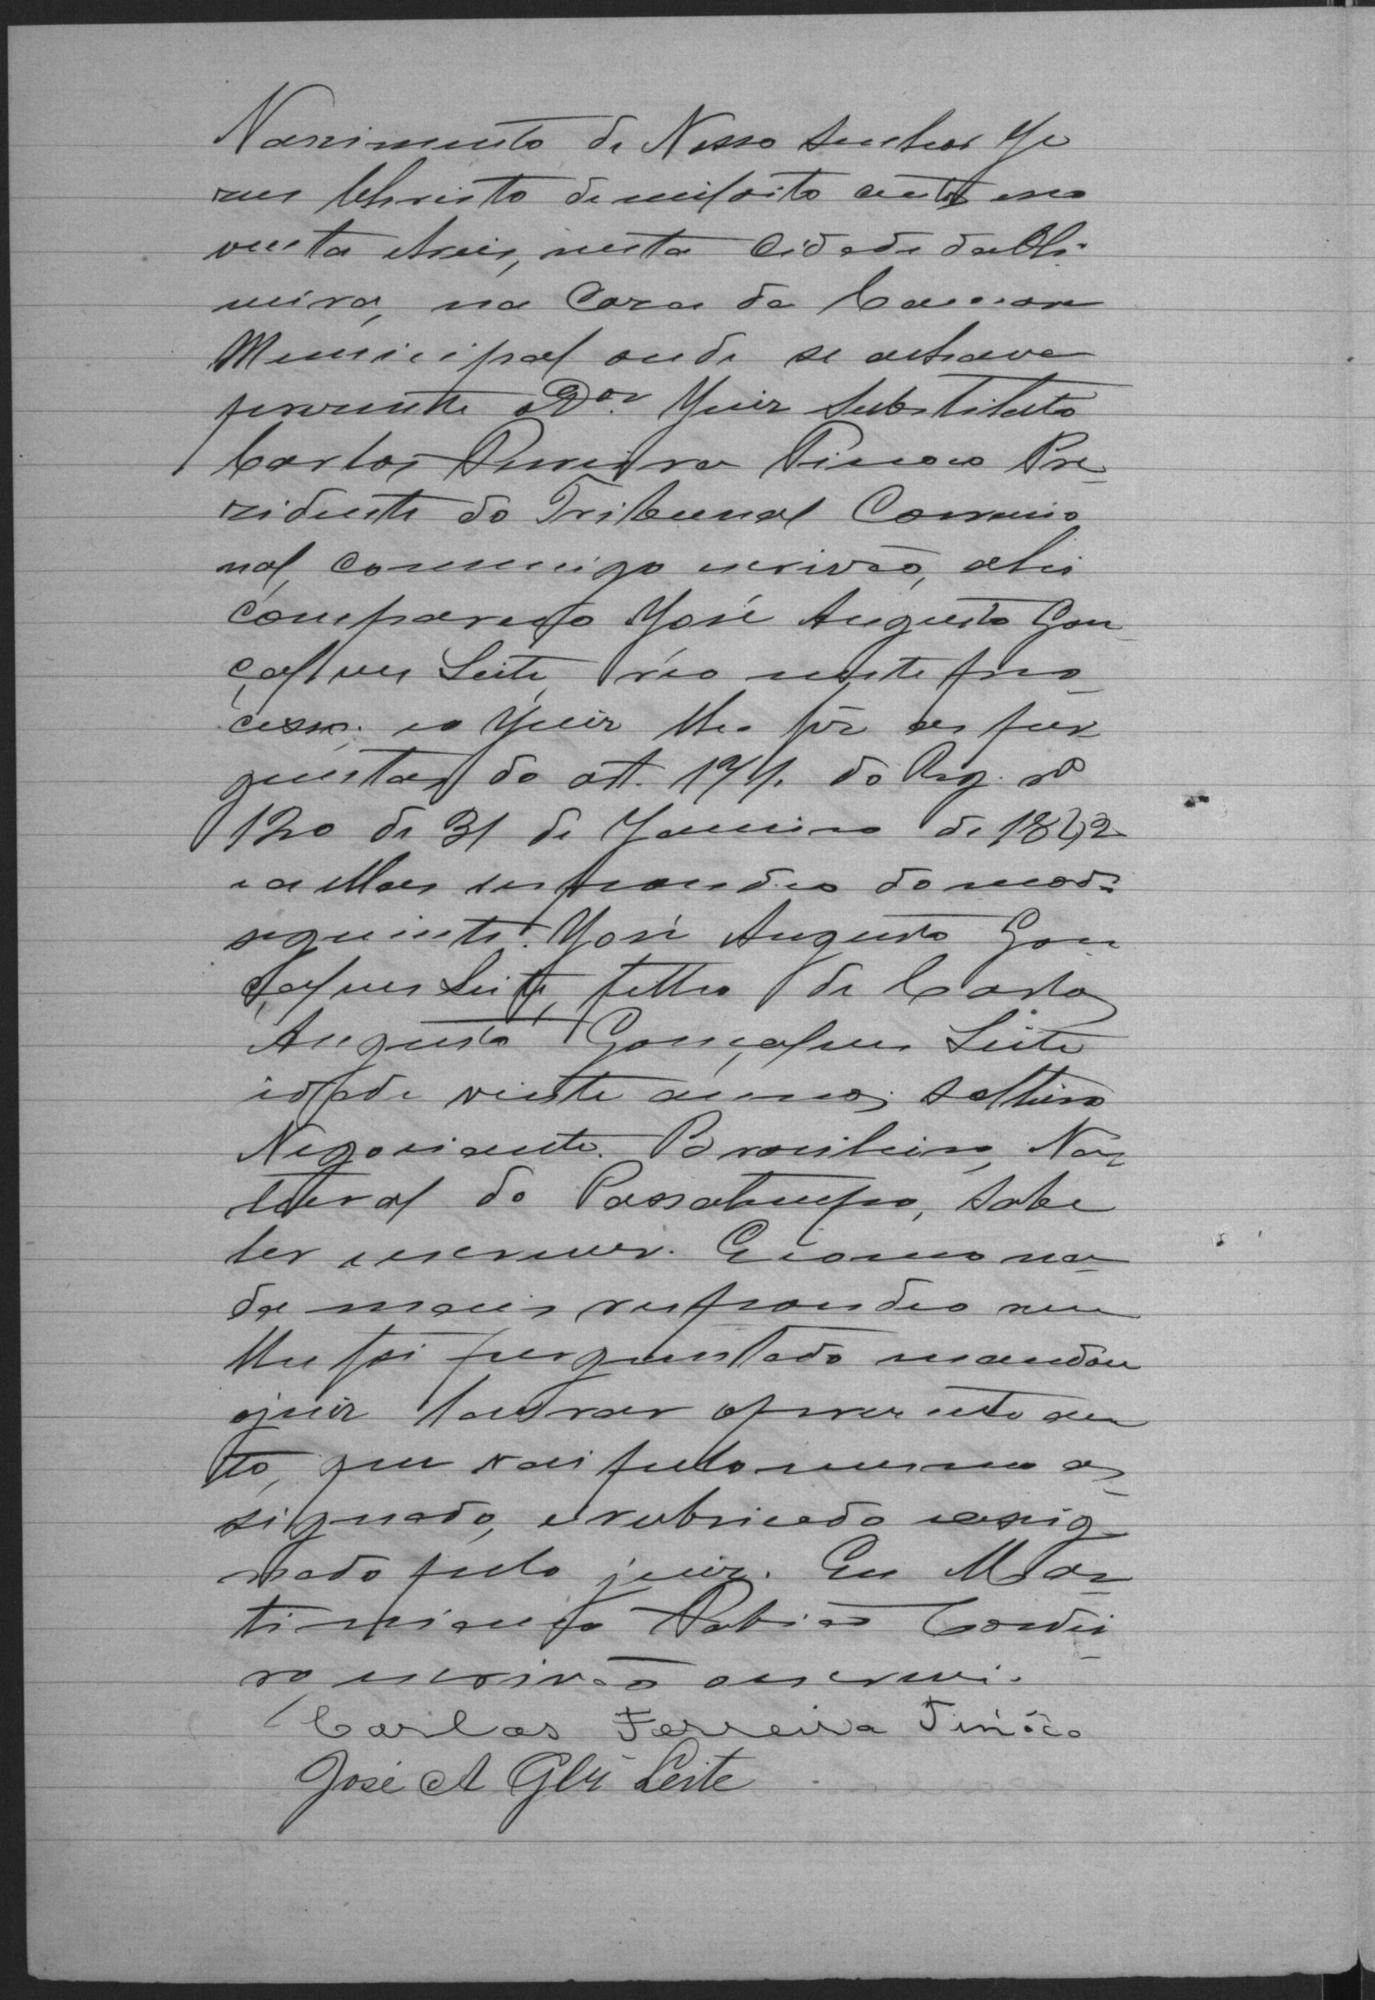 Nascimento de Nosso Senhor Je
sus Christo de mil oito centos e no
venta e seis, nesta Cidade da Oli
veira, na Caza da Camara
Municipal onde se achava
prezente o Dor. Juiz Substituto
Carlos Ferreira Tinoco Pre
zidente do Tribunal Correcio
nal, commigo escrivão, ahi
compareceo José Augusto Gon
çalves Leite, réo neste pro
cesso; e o Juiz lhe fêz as per
guntas do art. 171. do Reg. nº
120 de 31 de Janeiro de 1842
e a ellas respondeo do modo
seguinte: José Augusto Gon
çalves Leite, filho de Carlos
Augusto Gonçalves Leite
idade vinte annos; solteiro
Negociante. Brasileiro, Na
tural do Passatempo, sabe
ler e escrever. E como na
da mais respondeo nem
lhe foi perguntado mandou
o juiz lavrar o prezente au
to, que vai pelo mesmo as
signado, e rubricado e assig
nado pelo juiz. Eu Mar
timiano Cordei
ro, escrivão o escrevi.
Carlos Ferreira Tinôco
José A Glz Leite